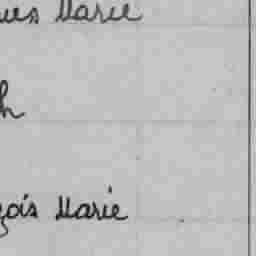 ues Marie
h
çois Marie